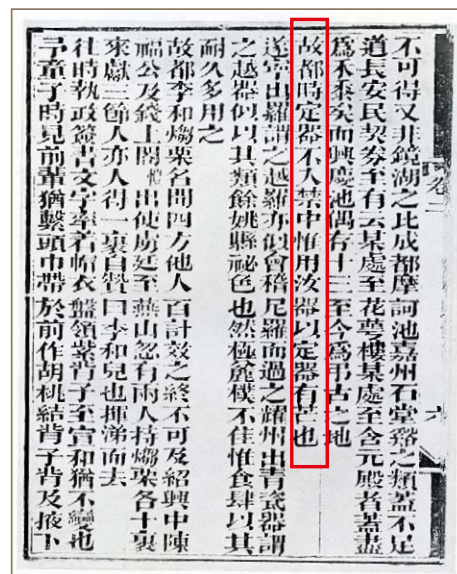 卷二
六
不可得又非鏡湖之比成都摩訶池嘉州石堂谿之類蓋不足
道長安民契券至有云某處至花萼樓某處至含元殿者蓋盡
爲禾黍矣而興慶池偶存十三至今爲弔古之地
故都時定器不入禁中惟用汝器以定器有芒也
遂寧出羅謂之越羅亦似會稽尼羅而過之耀州出青瓷器謂
之越器似以其類餘姚縣祕色也然極麄樸不佳惟食肆以其
耐久多用之
故都李和煼栗名聞四方他人百計效之終不可及紹興中陳
福公及錢上閣愷出使虜廷至燕山忽有兩人持煼栗各十裹
來獻三節人亦人得一裹自贊曰李和兒也揮涕而去
往時執政簽書文字卒著帽衣盤領紫背子至宣和猶不變也
予童子時見前輩猶繫頭巾帶於前作胡桃結背子背及腋下